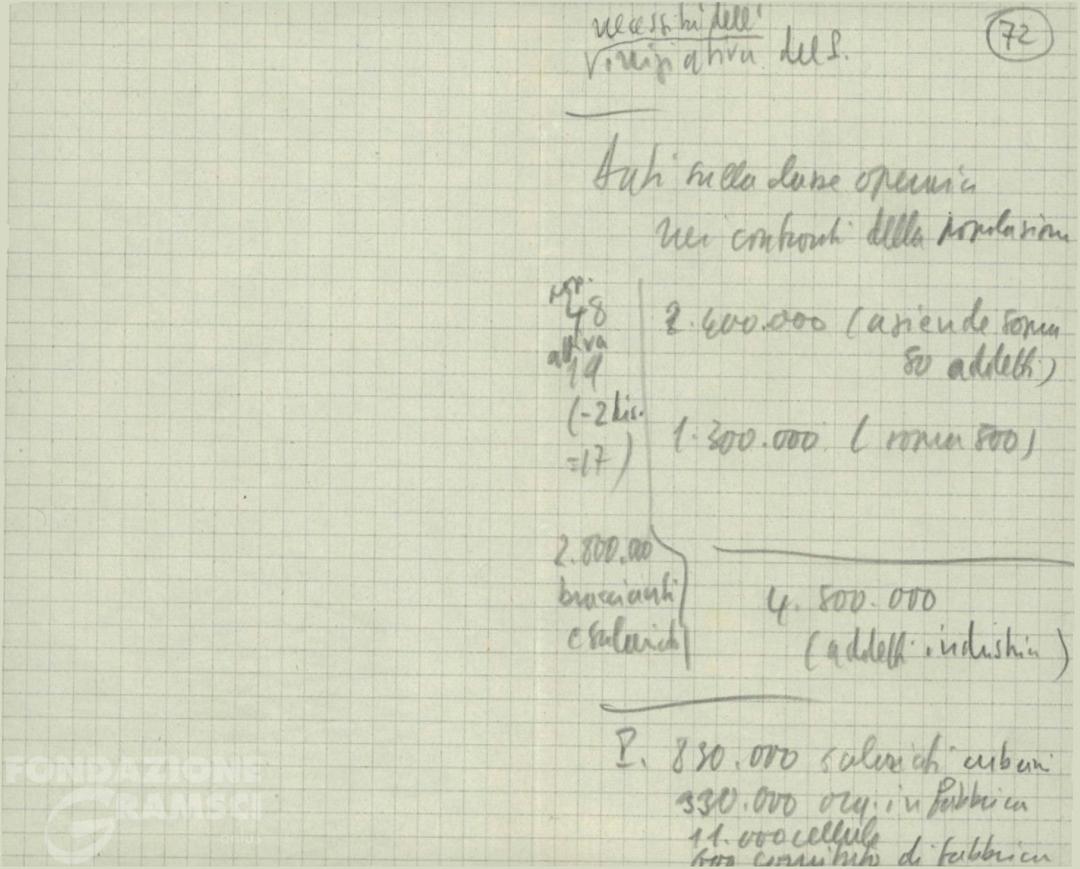 72
necessità dell'
iniziativa del P.
Dati sulla classe operaia
nei confronti della popolazione
48
attiva
19
(-2 dis.
=17)
2.400.000 (aziende sopra
50 addetti)
1.300.000 (sopra 500)
2.800.000
braccianti
e salariati
4.500.000
(addetti industria)
P. 830.000 salariati urbani
330.000 org. in fabbrica
11.000 cellule
600 comitato di fabbrica
FONDAZIONE
GRAMSCI